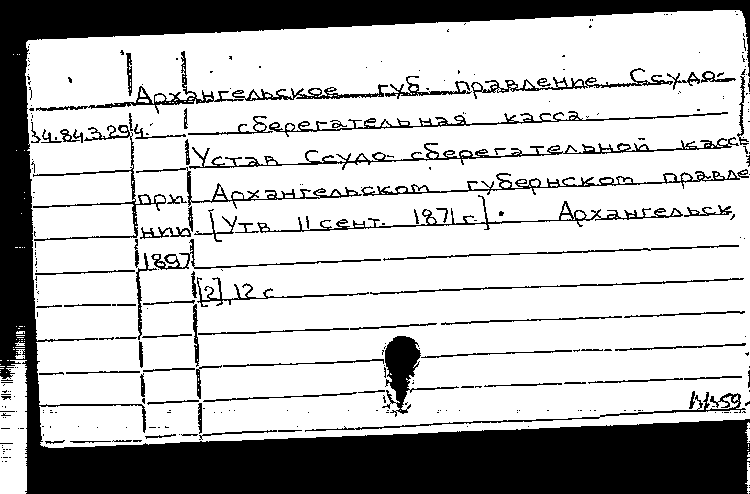 Архангельское губ. правление. Ссудо-
34.84.3.29.4. сберегательная касса.
Устав Ссудо-сберегательной кассы
при Архангельском губернском правле
нии. [Утв. 11 сент. 1871 г.]. Архангельск,
1897
[2], 12 с.